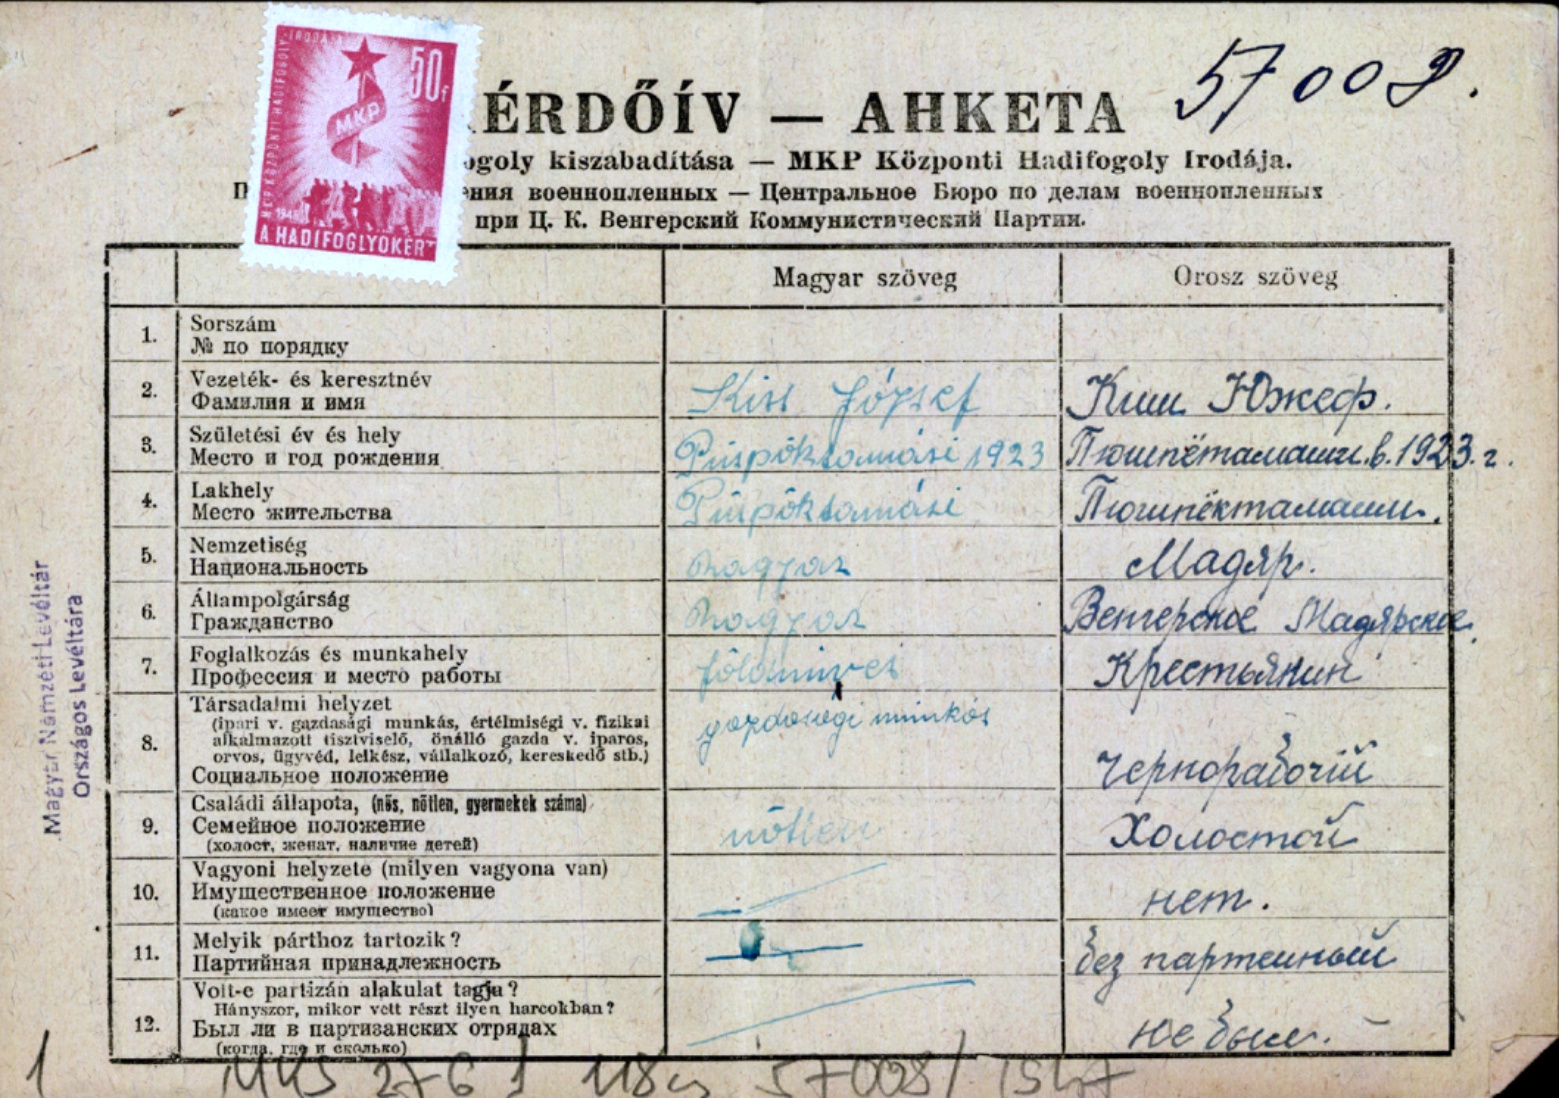 MKP KÖZPONTI HADIFOGLY-IRODÁJA
50f
MKP
A HADIFOGLYOKÉRT
57009.
ÉRDŐÍV — АНКЕТА
ogoly kiszabadítása — MKP Központi Hadifogoly Irodája.
ения военнопленных — Центральное Бюро по делам военнопленных
при Ц. К. Венгерский Коммунистический Партии.
Magyar szöveg Orosz szöveg
1. Sorszám
№ по порядку
2. Vezeték- és keresztnév
Фамилия и имя
Kiss József Киш Южеф.
3. Születési év és hely
Место и год рождения
Püspöktamási 1923 Пюшпётамаши.в.1923.г.
4. Lakhely
Место жительства
Püspöktamási Пюшпёктамаши.
5. Nemzetiség
Национальность
magyar Мадяр.
6. Állampolgárság
Гражданство
magyar Венгерское Мадярское.
7. Foglalkozás és munkahely
Профессия и место работы
földmives Крестьянин
8. Társadalmi helyzet
(ipari v. gazdasági munkás, értélmiségi v. fizikai
alkalmazott tisztviselő, önálló gazda v. iparos,
orvos, ügyvéd, lelkész, vállalkozó, kereskedő stb.)
Социальное положение
gazdasági munkás Чернорабочій
9. Családi állapota, (nős, nőtlen, gyermekek száma)
Семейное положение
(холост, женат, наличие детей)
nőtlen Холостой
10. Vagyoni helyzete (milyen vagyona van)
Имущественное положение
(какое имеет имущество)
нет.
11. Melyik párthoz tartozik?
Партийная принадлежность
без партейный
12. Volt-e partizán alakulat tagja?
Hányszor, mikor vett részt ilyen harcokban?
Был ли в партизанских отрядах
(когда, где и сколько)
не был.
Magyar Nemzeti Levéltár
Országos Levéltára
1
MKS 276 f 118 57008/1547